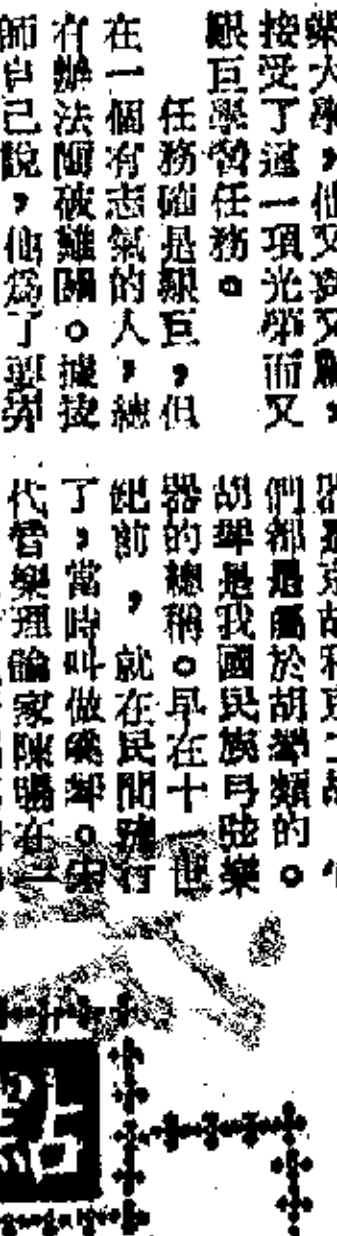 樂大學，他又
接受了這一項光榮而又
艱巨學習任務。
任務確是艱巨，但
在一個有志氣的人，總
有辦法闖破難關。據技
師自己說，他爲了要弄
器是京胡和京二胡
們都是屬於胡琴類的。
胡琴是我國民族弓弦樂
器的總稱。早在十一世
紀前，就在民間流行
了，當時叫做嵇琴。宋
代音樂理論家陳暘在一
點